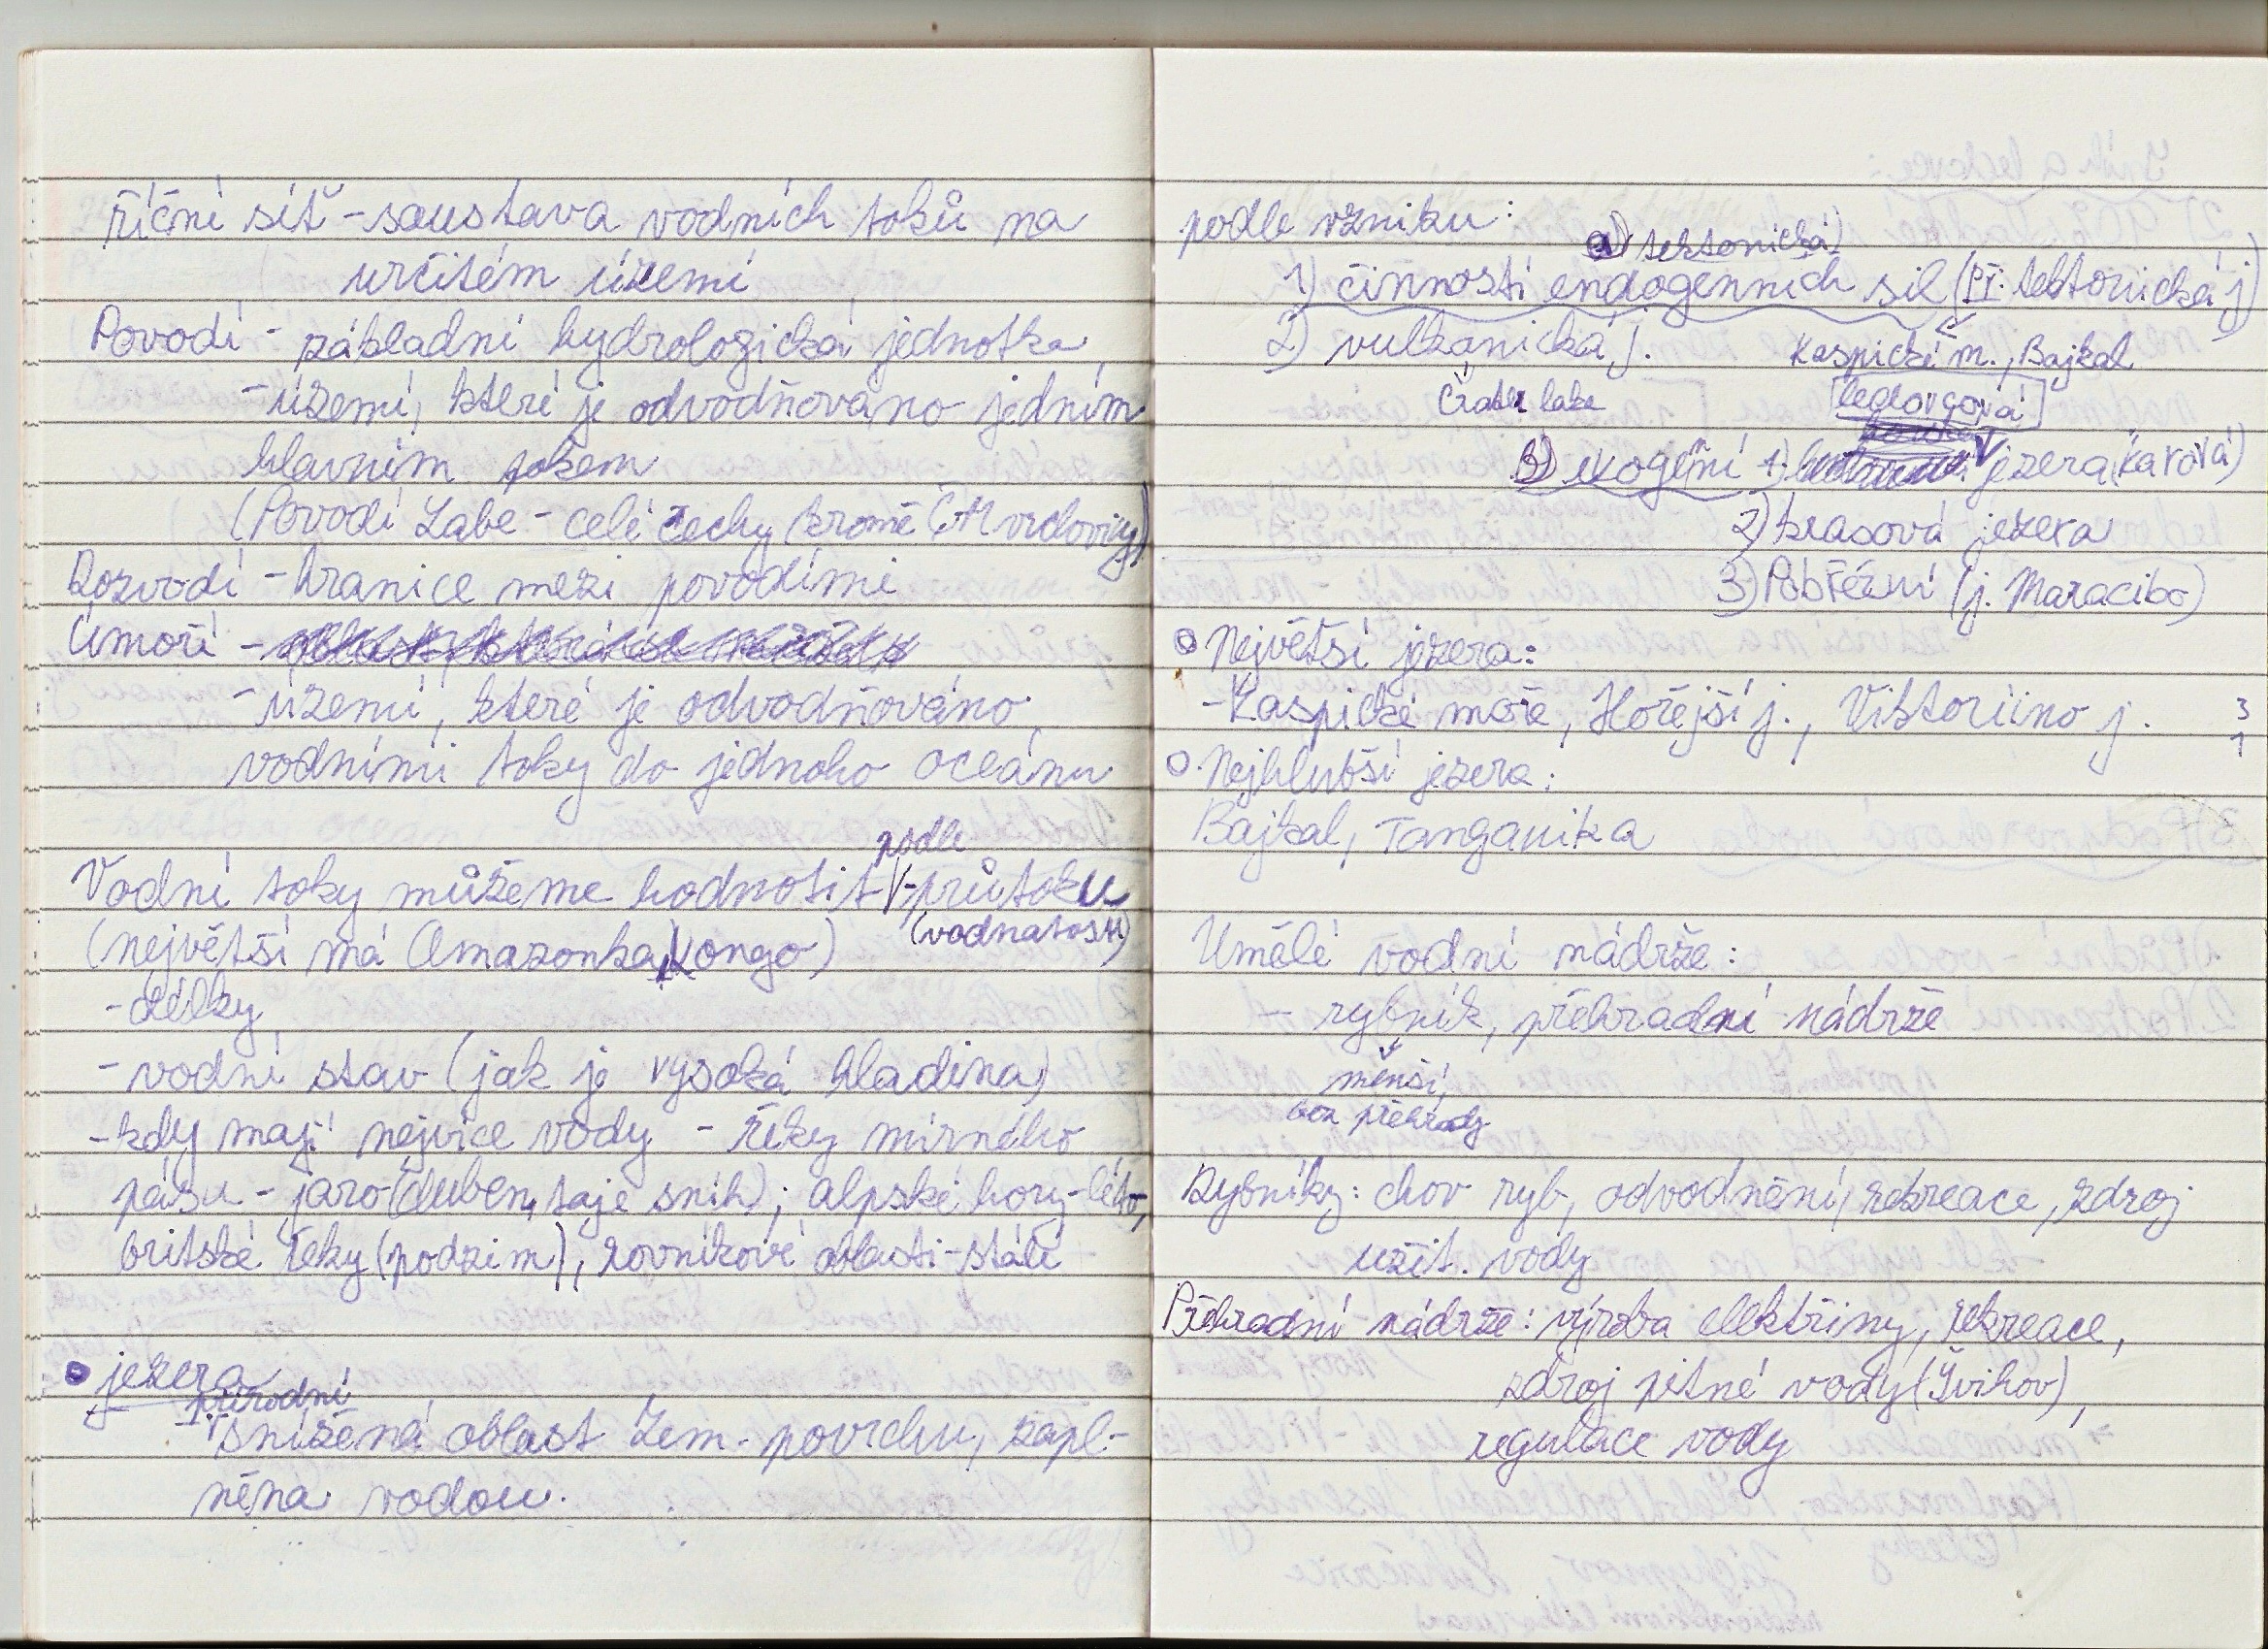 říční síť - soustava vodních toků na
určitém území
Povodí - základní hydrologická jednotka
- území, které je odvodňováno jedním
hlavním tokem
(Povodí Labe - celé Čechy (kromě ČM vrchoviny)
Rozvodí - hranice mezi povodími
Úmoří -
- území, které je odvodňováno
vodními toky do jednoho oceánu
podle
Vodní toky můžeme hodnotit - průtoku
(vodnatosti)
(největší má Amazonka, Kongo)
- délky
- vodní stav (jak je vysoká hladina)
- kdy mají nejvíce vody - řeky mírného
pásu - jaro (duben, taje sníh); alpské hory - léto,
britské řeky (podzim), rovníkové oblasti - stálé
jezera
přírodní
snížená oblast zem. povrchu, zapl-
něna vodou.
podle vzniku:
a) tektonická)
1) činností endogenních sil (př. tektonická j)
2) vulkanická j. Kaspické m., Bajkal
Crater lake ledovcová
B) exogení 1. jezera (karová)
2) krasová jezera
3) Pobřežní (j. Maracibo)
Největší jezera:
- Kaspické moře, Hořejší j., Viktoriino j. 3
1
Nejhlubší jezera:
Bajkal, Tanganika
Umělé vodní nádrže:
- rybník, přehradní nádrže
menší,
bez přehrady
Rybníky: chov ryb, odvodnění, rekreace, zdroj
užit. vody
Přehradní nádrže: výroba elektřiny, rekreace,
zdroj pitné vody (Švihov),
regulace vody